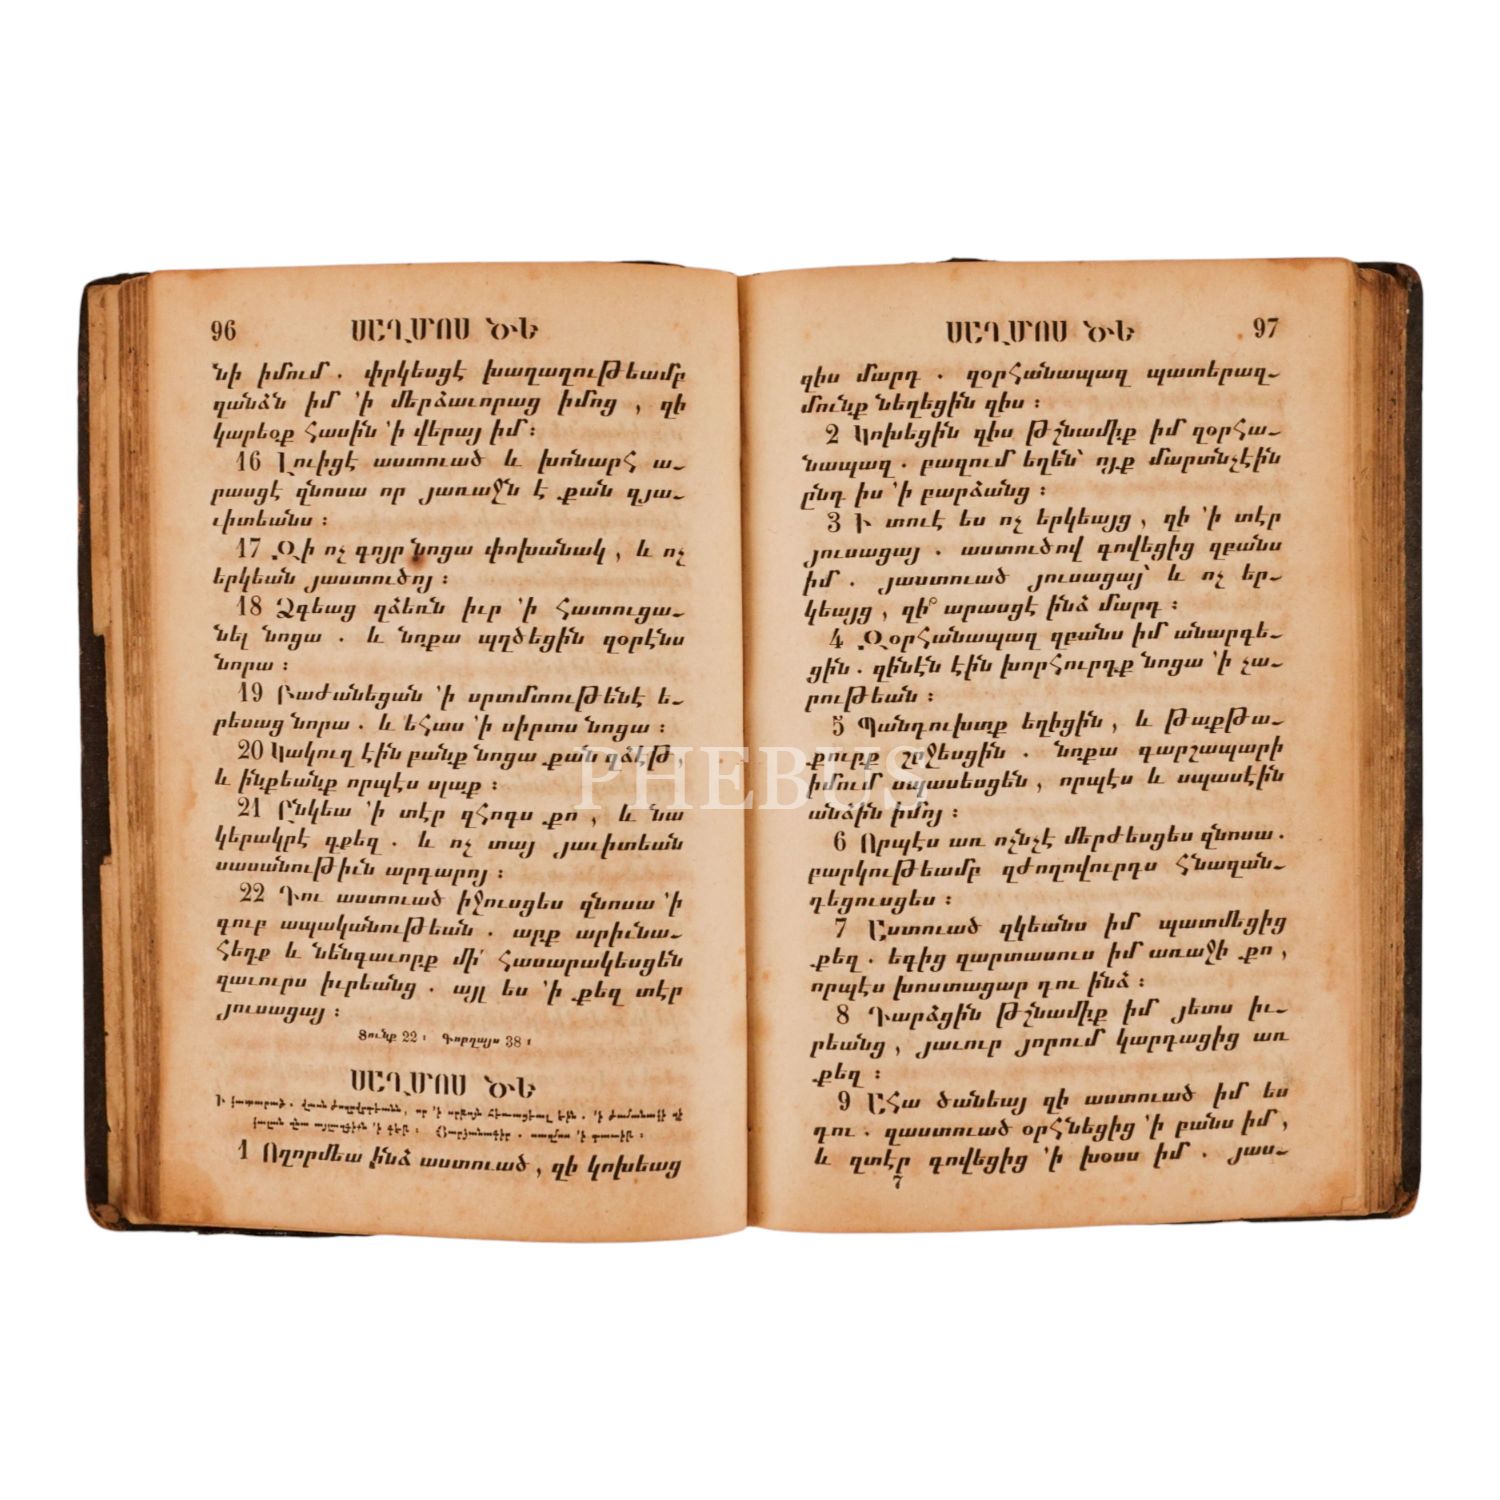 96 ՍԱՂՄՈՍ ԾԵ
նի իմում . փրկեսցէ խաղաղութեամբ
զանձն իմ ՚ի մերձաւորաց իմոց , զի
կարեօք հասին ՚ի վերայ իմ ։
16 Լուիցէ աստուած և խոնարհ ա-
րասցէ զնոսա որ յառաջն է քան զյա-
ւիտեանս ։
17 Զի ոչ գոյր նոցա փոխանակ , և ոչ
երկեան յաստուծոյ ։
18 Ձգեաց զձեռն իւր ՚ի հատուցա-
նել նոցա . և նոքա պղծեցին զօրէնս
նորա ։
19 Բաժանեցան ՚ի սրտմտութենէ ե-
րեսաց նորա . և եհաս ՚ի սիրտս նոցա ։
20 Կակուղ էին բանք նոցա քան զձէթ ,
և ինքեանք որպէս սլաք ։
21 Ընկեա ՚ի տէր զհոգս քո , և նա
կերակրէ զքեզ . և ոչ տայ յաւիտեան
սասանութիւն արդարոյ ։
22 Դու աստուած իջուսցես զնոսա ՚ի
գուբ ապականութեան . արք արիւնա-
հեղք և նենգաւորք մի՛ հասարակեսցեն
զաւուրս իւրեանց . այլ ես ՚ի քեզ տէր
յուսացայ ։
Տունք 22 ։ Գոբղայս 38 ։
ՍԱՂՄՈՍ ԾԵ
Ի կատարած . վասն ժողովրդեանն , որ ՚ի սրբոյն հեռացեալ էին . ՚ի ժամանակի զի
կալան զնա այլազգիքն ՚ի գեթ ։ . սաղմոս ՚ի դաւիթ ։
1 Ողորմեա ինձ աստուած , զի կոխեաց
ՍԱՂՄՈՍ ԾԵ 97
զիս մարդ . զօրհանապազ պատերազ-
մունք նեղեցին զիս ։
2 Կոխեցին զիս թշնամիք իմ զօրհա-
նապազ . բազում եղեն՝ ոյք մարտնչէին
ընդ իս ՚ի բարձանց ։
3 Ի տուէ ես ոչ երկեայց , զի ՚ի տէր
յուսացայ . աստուծով գովեցից զբանս
իմ . յաստուած յուսացայ՝ և ոչ եր-
կեայց , զի՞ արասցէ ինձ մարդ ։
4 Զօրհանապազ զբանս իմ անարգե-
ցին . զինէն էին խորհուրդք նոցա ՚ի չա-
րութեան ։
5 Պանդուխտք եղիցին , և թաքթա-
քուրք շրջեսցին . նոքա գարշապարի
իմում սպասեսցեն , որպէս և սպասէին
անձին իմոյ ։
6 Որպէս առ ոչնչէ մերժեսցես զնոսա .
բարկութեամբ զժողովուրդս հնազան-
դեցուսցես ։
7 Աստուած զկեանս իմ պատմեցից
քեզ . եդից զարտասուս իմ առաջի քո ,
որպէս խոստացար դու ինձ ։
8 Դարձցին թշնամիք իմ յետս իւ-
րեանց , յաւուր յորում կարդացից առ
քեզ ։
9 Ահա ծանեայ զի աստուած իմ ես
դու . զաստուած օրհնեցից ՚ի բանս իմ ,
և զտէր գովեցից ՚ի խօսս իմ . յաս-
7
PHEBUS